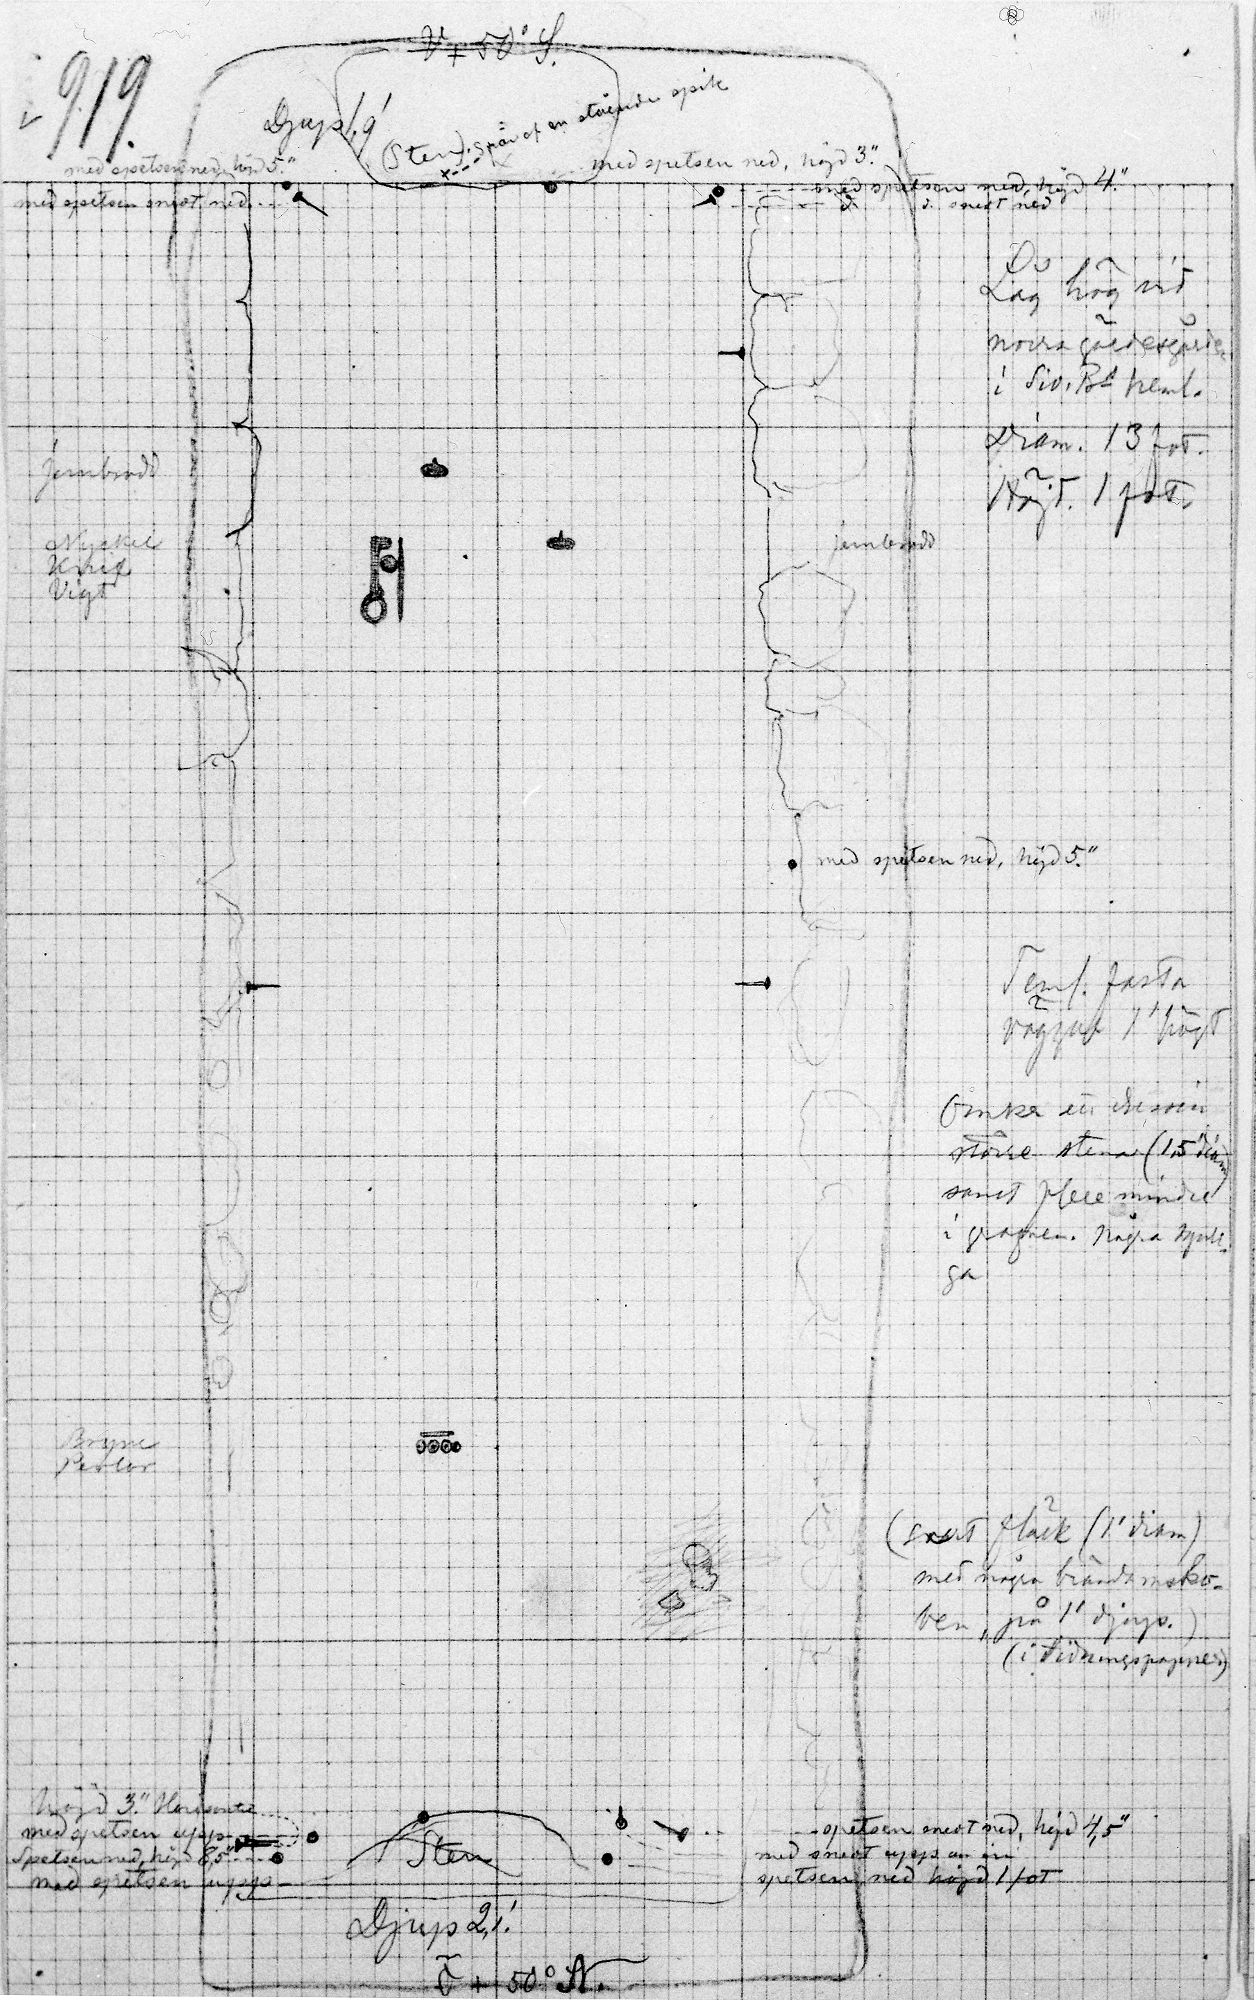 919.
V + 50° S.
Djup 1,9'
(Sten). Spår af en stående spik
med spetsen ned, höjd 5."
med spetsen ned, höjd 3."
med spetsen ned, höjd 4."
med spetsen snedt ned
d. d. snedt ned
Låg hög vid
norra gärdesgården
i
Diam. 13 fot.
Höjd. 1 fot.
jernbrodd
Nyckel
Knif
Vigt
jernbrodd
med spetsen ned, höjd 5."
Teml. fasta
väggar 1' högt
större stenar (1,5' diam)
samt flere mindre
i grafven. några
Bryne
Perlor
(Svart fläck (1' diam)
med några brända msko-
ben, på 1' djup.)
(i tidningspapper)
höjd 3."
med spetsen upp
Spetsen ned, höjd 8,5"
med spetsen upp
Sten
spetsen snedt ned, höjd 4,5"
med snedt upp
spetsen ned höjd 1 fot
Djup 2,1'
V + 50° N.